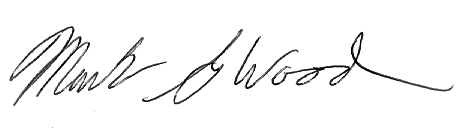 Mark G Wood